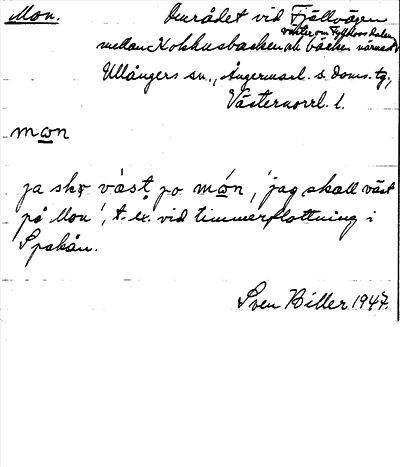 Mon. Området vid Fjällvägen
väster om
mellan Kokkusbacken och bäcken närmast
Ullångers sn., Ångermanl. s. doms. tg.,
Västernorrl. l.
mωn
ja skɤ vást po mώn, 'jag skall väst
på Mon', t. ex. vid timmerflottning i
Spakån.
Sven Biller 1947.